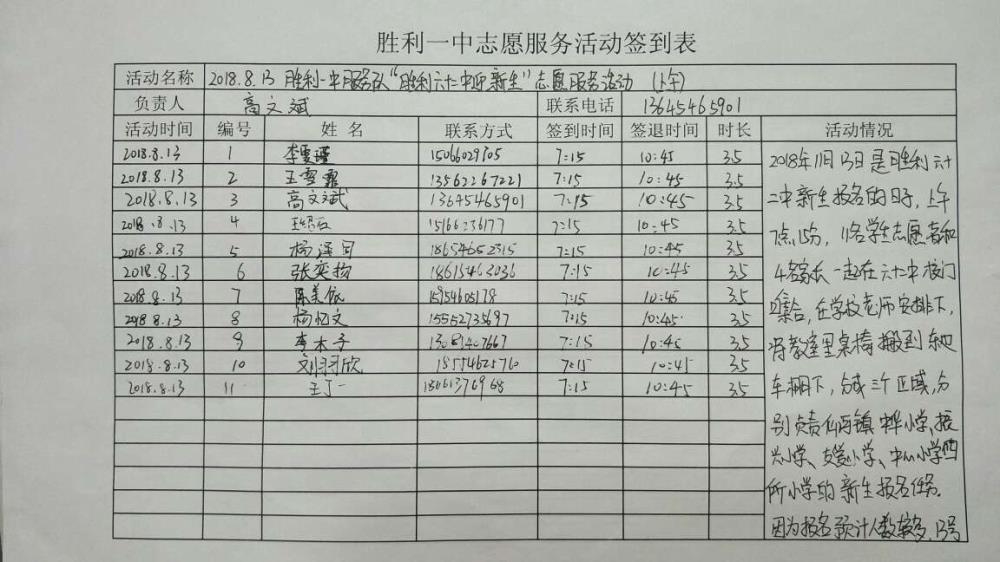 胜利一中志愿服务活动签到表
活动名称 2018.8.13 胜利一中服务队“胜利六十二中迎新生”志愿服务活动 (上午)
负责人 高文斌 联系电话 13645465901
活动时间 编号 姓名 联系方式 签到时间 签退时间 时长 活动情况
2018.8.13 1 15066029805 7:15 10:45 3.5
2018.8.13 2 王雪霏 13562267221 7:15 10:45 3.5
2018.8.13 3 高文斌 13645465901 7:15 10:45 3.5
2018.8.13 4 15166236177 7:15 10:45 3.5
2018.8.13 5 18654652315 7:15 10:45 3.5
2018.8.13 6 张奕扬 18615463036 7:15 10:45 3.5
2018.8.13 7 陈美依 15954605178 7:15 10:45 3.5
2018.8.13 8 杨忆文 15552735697 7:15 10:45 3.5
2018.8.13 9 李木子 7:15 10:45 3.5
2018.8.13 10 刘羽欣 7:15 10:45 3.5
2018.8.13 11 王丁一 7:15 10:45 3.5
2018年11月13日是胜利六十
二中新生报名的日子,上午
7点15分,11名学生志愿者和
4名家长一起在六十二中校门
口集合,在学校老师安排下,
将教室里桌椅搬到东边
车棚下,分成三个区域,分
别负责仙河镇中华小学、振
兴小学、友爱小学、中心小学四
所小学的新生报名任务。
因为报名预计人数较多,13号